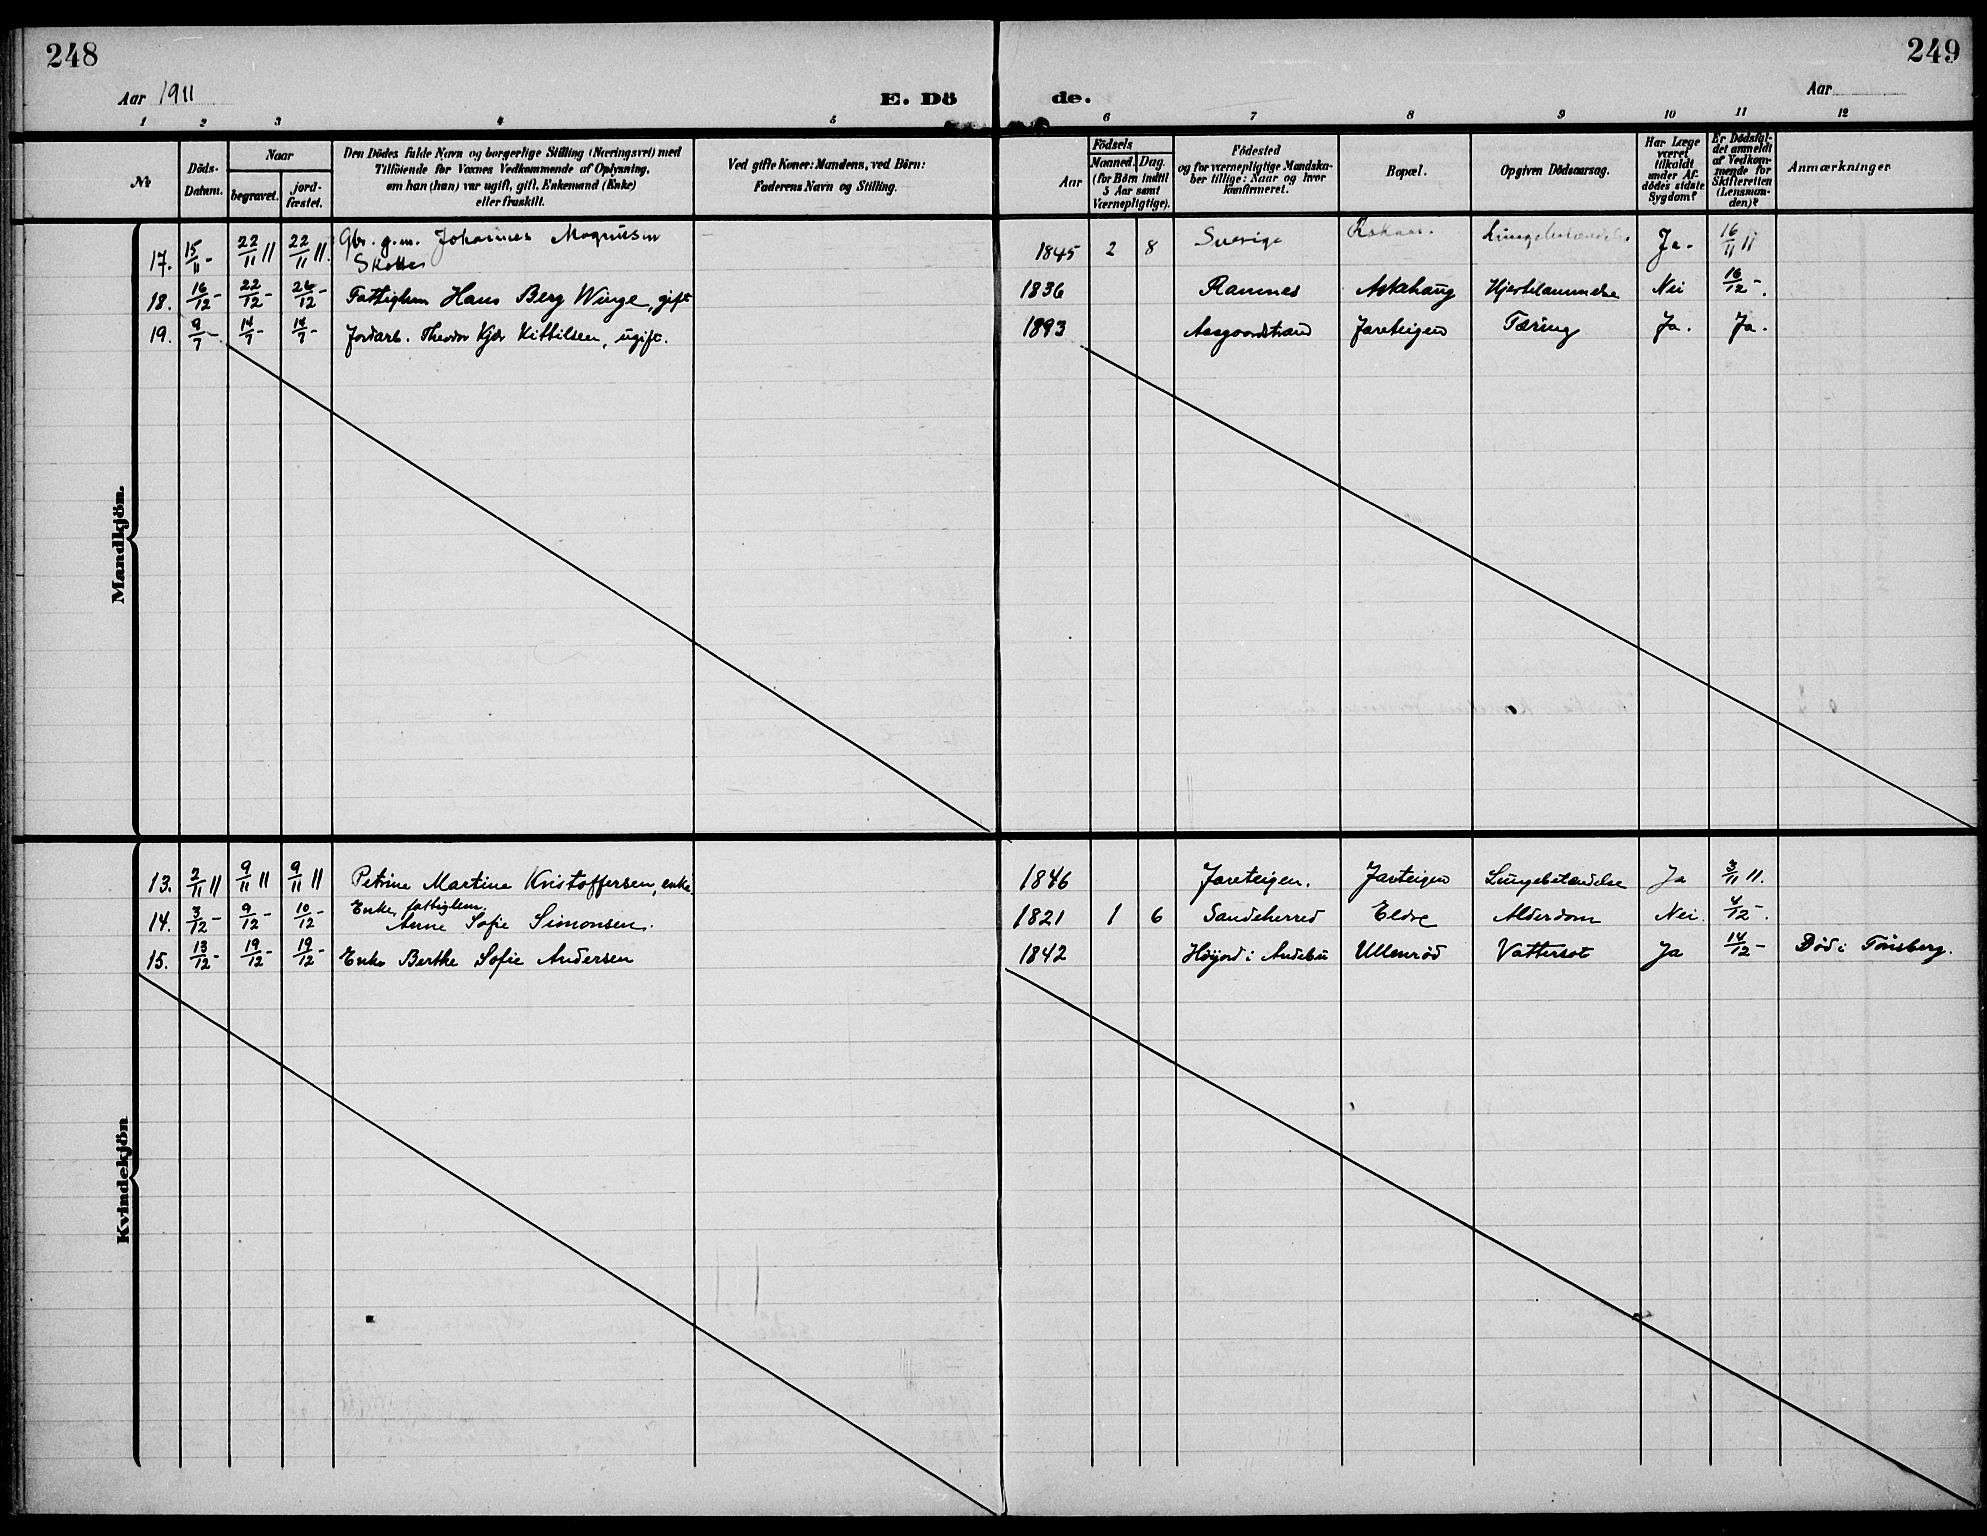 248
249
Aar 1911
E. Dö
de.
Aar
1 2 3 4 5 6 7 8 9 10 11 12
№
Döds-
Datum.
Naar
begravet.
jord-
fæstet.
Den Dödes fulde Navn og borgerlige Stilling (Næringsvei) med
Tilföiende for Voxnes Vedkommende af Oplysning,
om han (hun) var ugift, gift, Enkemand (Enke)
eller fraskilt.
Ved gifte Koner: Mandens, ved Börn:
Faderens Navn og Stilling.
Aar
Födsels
Maaned. Dag.
(for Börn indtil
5 Aar samt
Værnepligtige).
Födested
og for værnepligtige Mandska-
ber tillige: Naar og hvor
konfirmeret.
Bopæl.
Opgiven Dödsaarsag.
Har Læge
været
tilkaldt
under Af-
dödes sidste
Sygdom?
Er Dödsfal-
det anmeldt
af Vedkom-
mende for
Skifteretten
(Lensman-
den)?
Anmærkninger
Mandkjön.
17. 15/11 - 22/11 11 22/11 11. Gbr. g.m. Johannes Magnusen 1845 2 8 Sverige Lungebetændelse Ja. 16/11 11
18. 16/12 - 22/12 - 26/12 - Fattiglem Hans Berg Winge, gift 1836 Ramnes Askehaug Hjertelammelse Nei 16/12 -.
19. 9/7 - 14/7 - 14/7 - Jordarb. Theodor Kjær Kittilsen, ugift. 1893 Aasgaardstrand Jareteigen Tæring Ja. Ja.
Kvindekjön
13. 2/11 11 9/11 11 9/11 11 Petrine Martine Kristoffersen, enke 1846 Jareteigen. Jareteigen Lungebetændelse Ja 3/11 11.
14. 3/12 - 9/12 - 10/12 - Enke, fattiglem.
Anne Sofie Simonsen. 1821 1 6 Sandeherred Eldre Alderdom Nei. 4/12 -.
15. 13/12 - 19/12 - 19/12 - Enke Berthe Sofie Andersen 1842 Höijord i Andebu Ullenröd Vattersot Ja 14/12 - Död i Tönsberg.